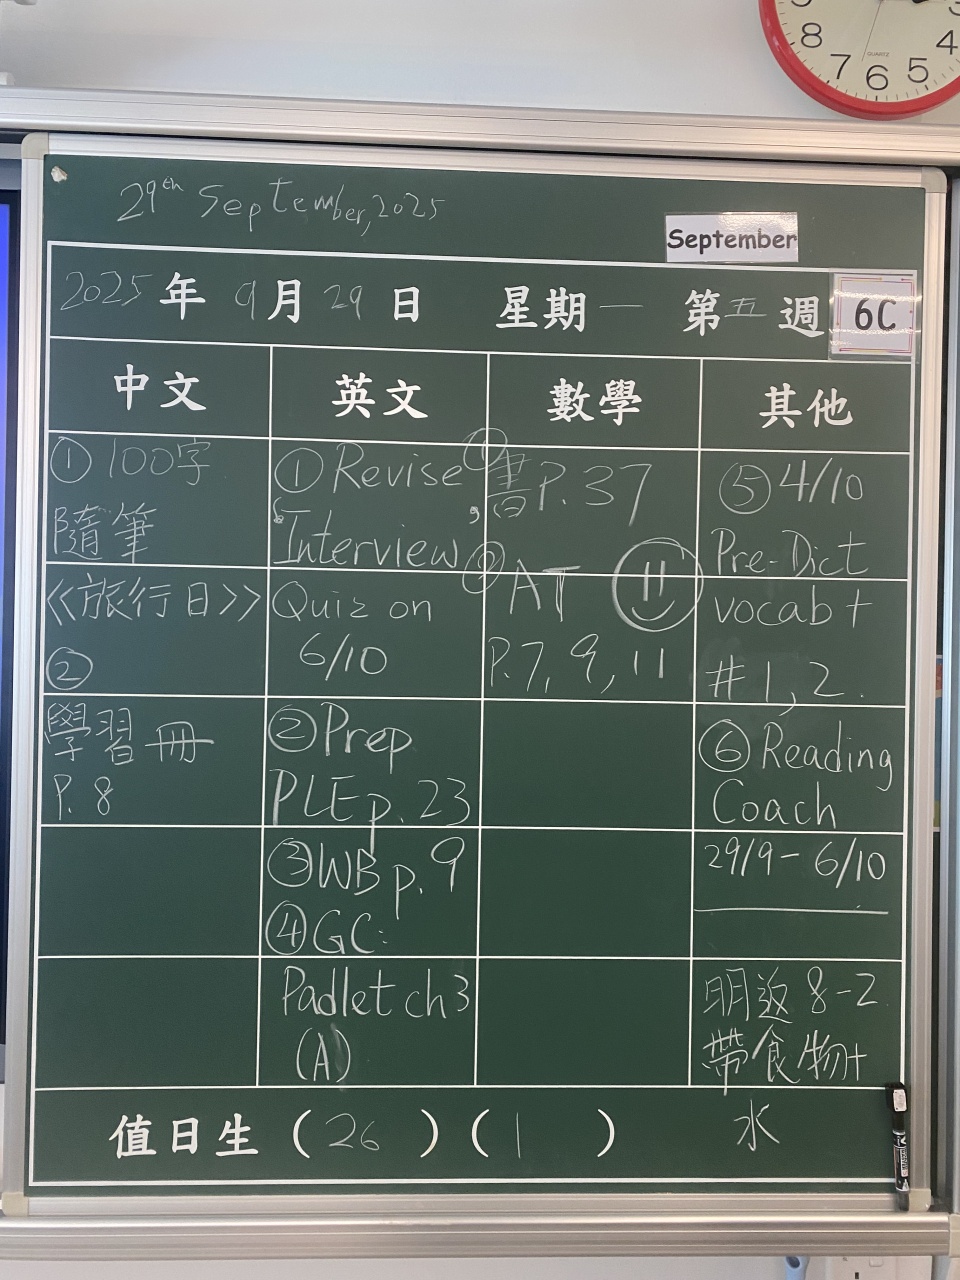 29th September, 2025
September
2025 年 9 月 29 日 星期一 第五週 6C
中文
① 100字
隨筆
《旅行日》
②
學習冊
P. 8
英文
① Revise
Interview,
Quiz on
6/10
② Prep
PLE p. 23
③ WB p. 9
④ GC:
Padlet ch3
(A)
數學
① 書P. 37
② AT
P. 7, 9, 11
其他
⑤ 4/10
Pre-Dict
vocab +
# 1, 2.
⑥ Reading
Coach
29/9 - 6/10
明返 8-2
帶食物+
水
值日生 (26) (1)
8 7 6 5 4
QUARTZ